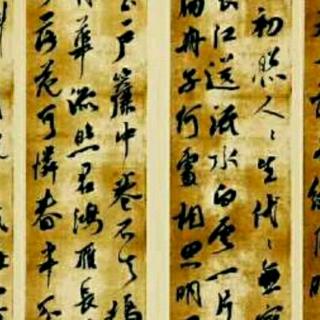 初照人〻生代〻無窮
長江送流水白雲一片
扁舟子何處相思明
戶簾中卷不去擣
華流照君鴻雁長
落花可憐春半不